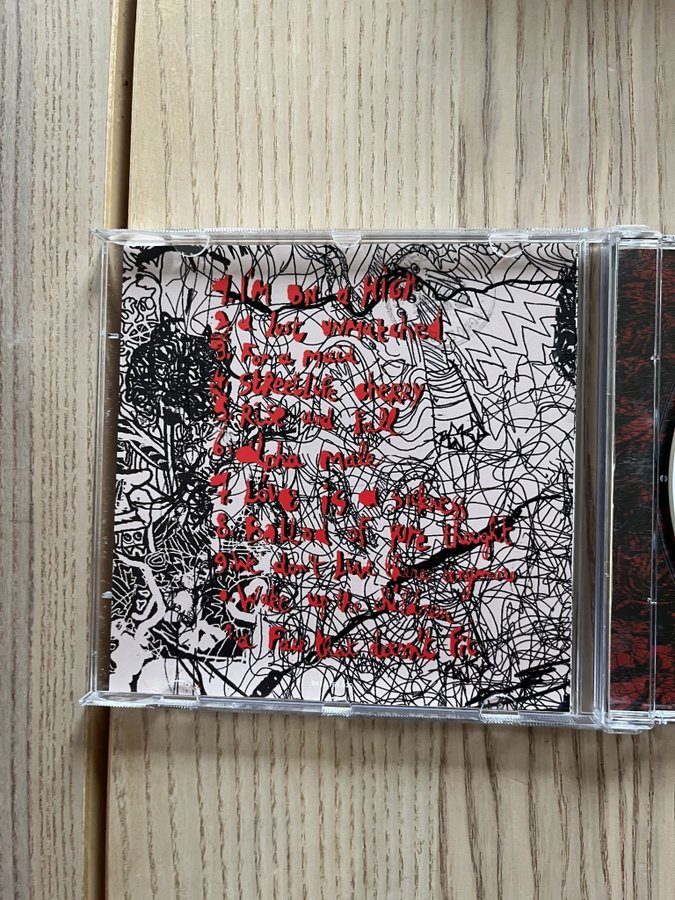 1. I'M ON A HIGH
2. A lost unmatched
3. For a maid
4. Streetlife cherry
5. Rise and Fall
6. Alpha male
7. Love is a sickness
8. Ballad of pure thought
9. We don't live there anymore
Wake up the
a Face that doesn't Fit